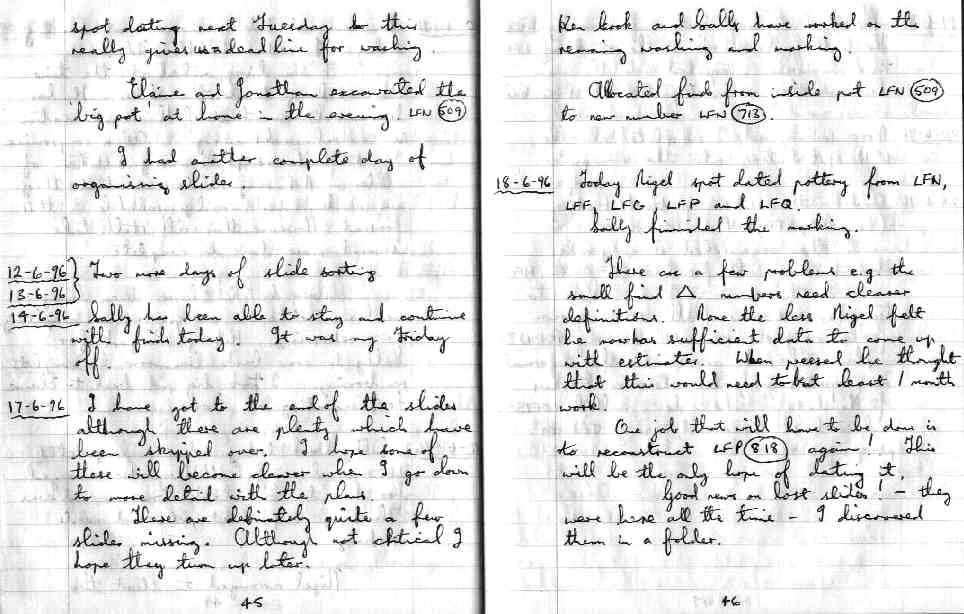 spot dating next Tuesday so this
really gives us a deadline for washing.
Elaine and Jonathan excavated the
'big pot' at home in the evening. LFN 509
I had another complete day of
organising slides.
12-6-96 } Two more days of slide sorting
13-6-96 }
14-6-96 Sally has been able to stay and continue
with finds today. It was my Friday
off.
17-6-96 I have got to the end of the slides
although there are plenty which have
been skipped over. I hope some of
these will become clearer when I go down
to more detail with the plans.
There are definately quite a few
slides missing. Although not critical I
hope they turn up later.
45
Ken Cook and Sally have worked on the
remaining washing and marking.
Allocated finds from inside pot LFN 509
to new number LFN 713.
18-6-96 Today Nigel spot dated pottery from LFN,
LFF, LFG, LFP and LFQ.
Sally finished the marking.
There are a few problems e.g. the
small find △ numbers need clearer
definitions. None the less Nigel felt
he now has sufficient data to come up
with estimates. When pressed he thought
that this would need to be at least 1 month
work.
One job that will have to be done is
to reconstruct LFP 818 again! This
will be the only hope of dating it.
Good news on lost slides! - they
were here all the time - I discovered
them in a folder.
46